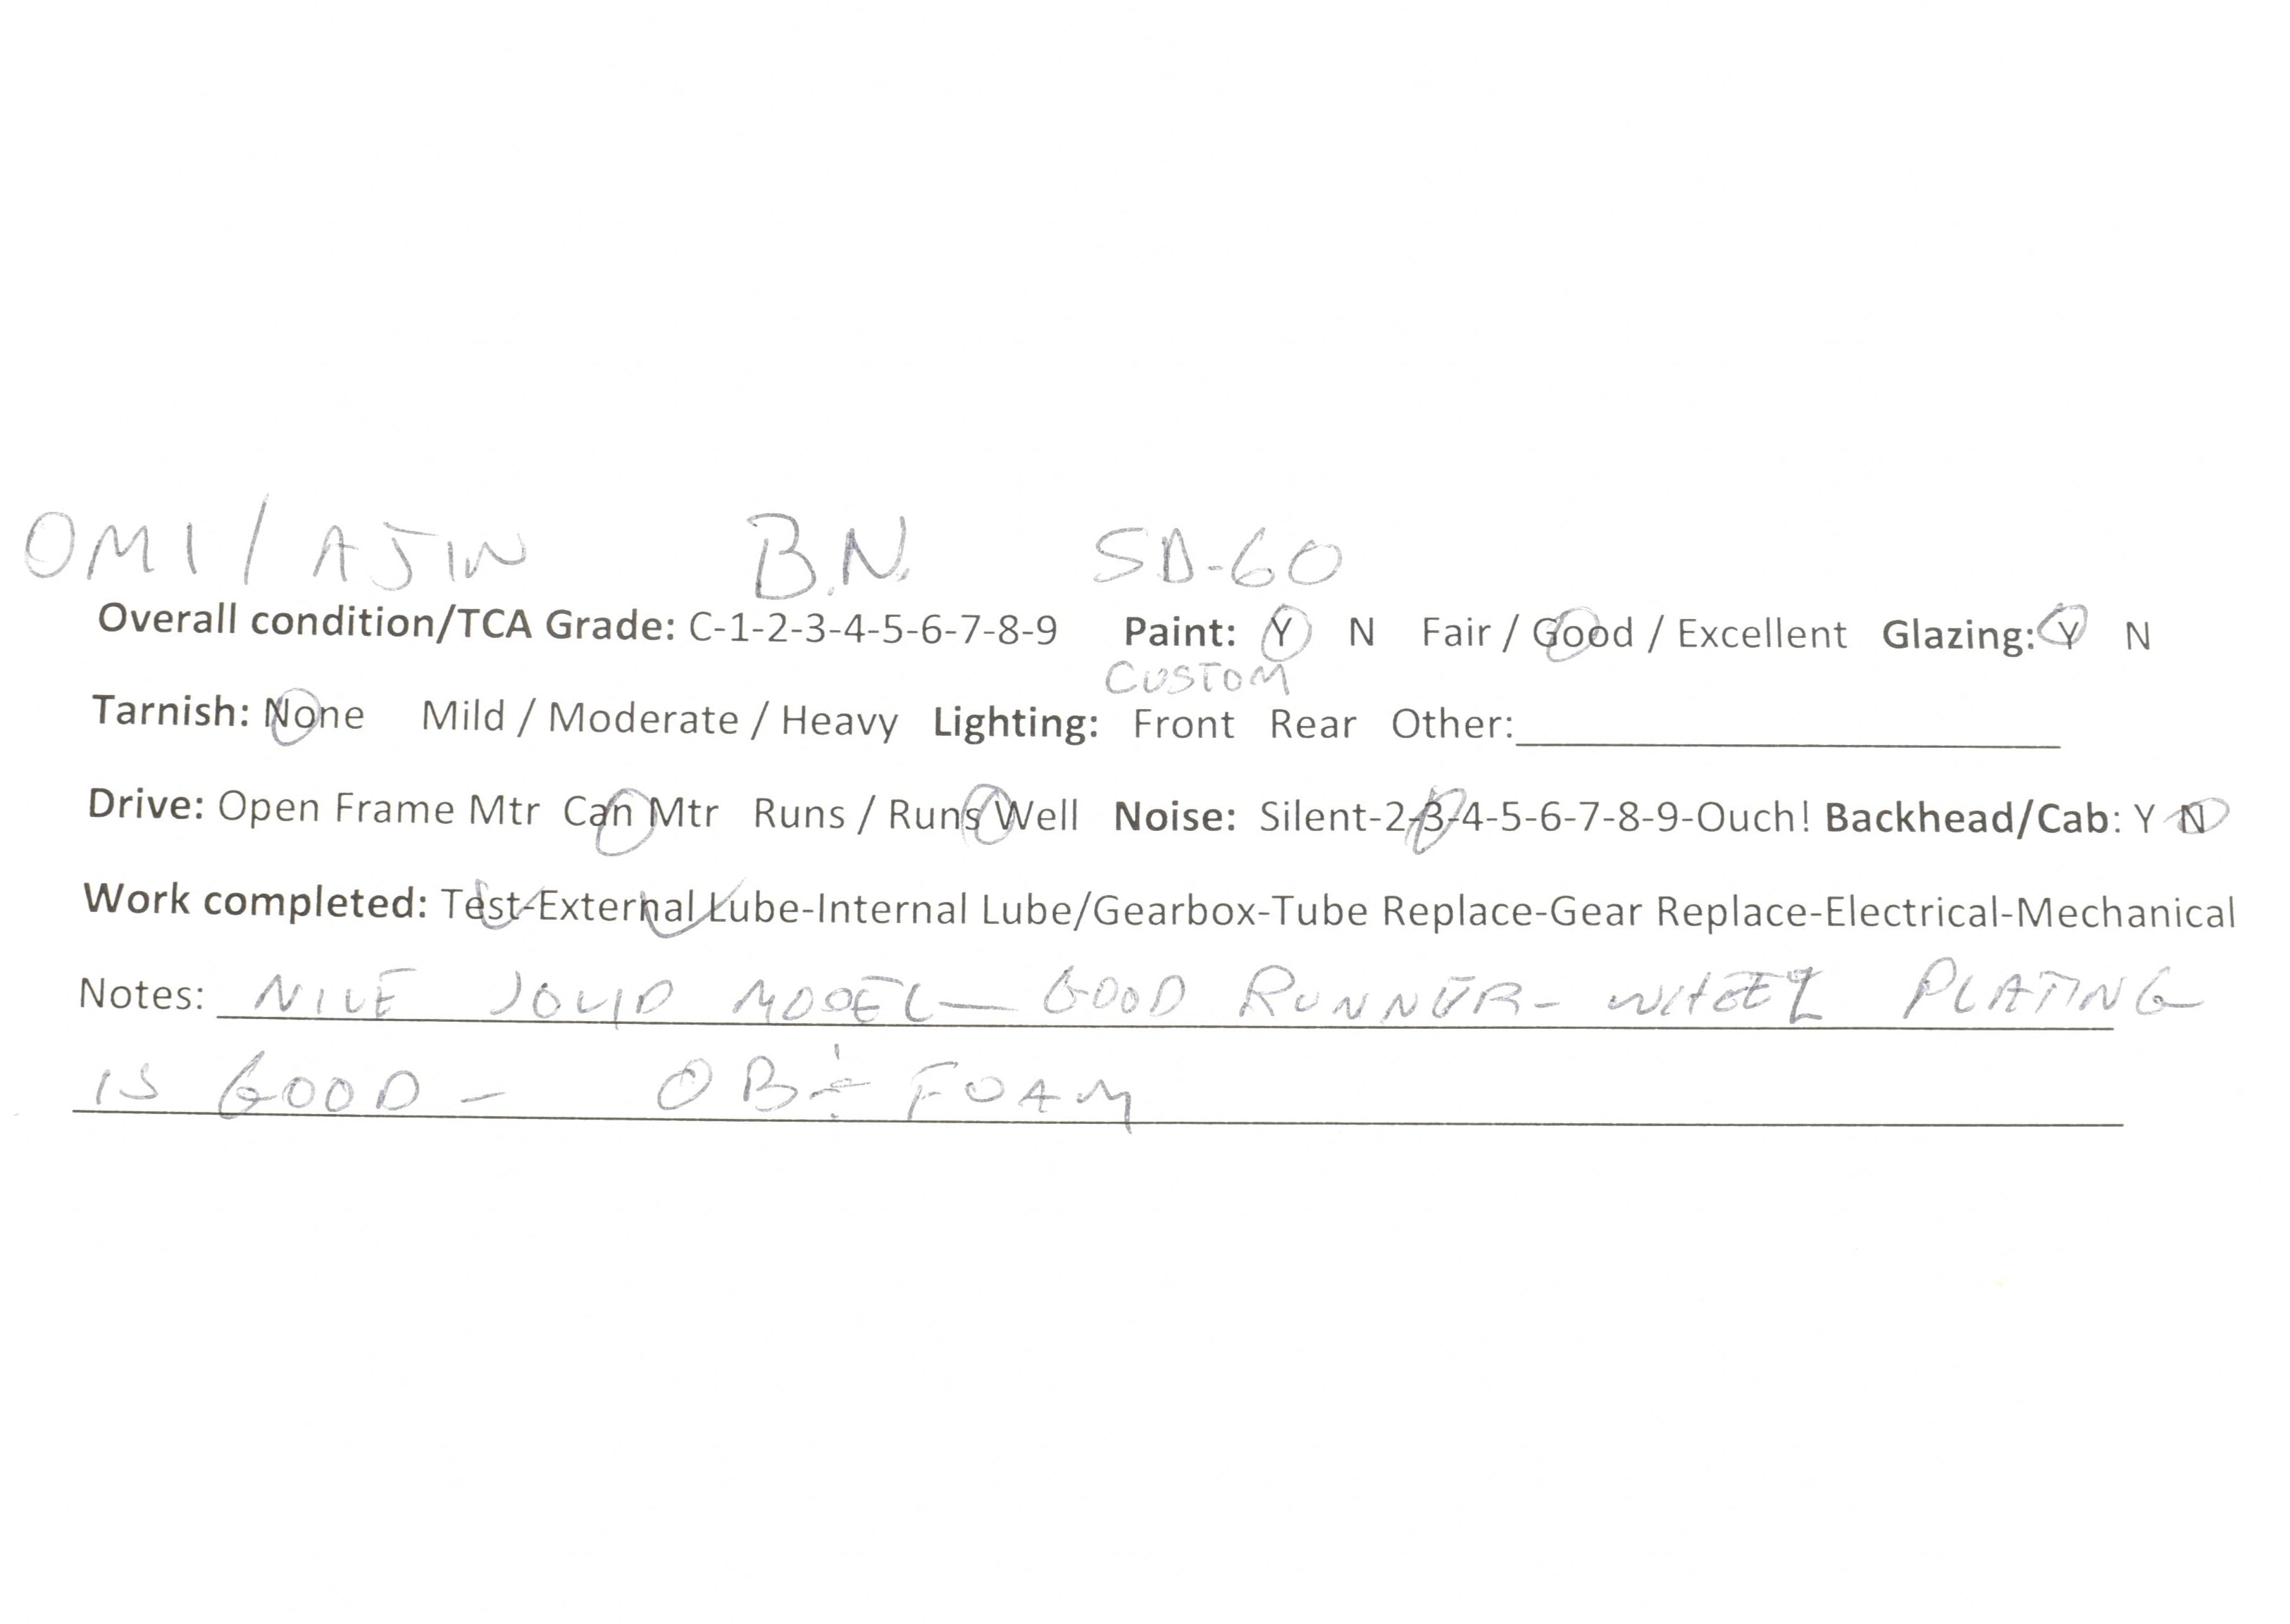 OMI / AJIN B.N. SD-60
Overall condition/TCA Grade: C-1-2-3-4-5-6-7-8-9 Paint: Y N Fair / Good / Excellent Glazing: Y N
CUSTOM
Tarnish: None Mild / Moderate / Heavy Lighting: Front Rear Other:
Drive: Open Frame Mtr Can Mtr Runs / Runs Well Noise: Silent-2-3-4-5-6-7-8-9-Ouch! Backhead/Cab: Y N
Work completed: Test-External Lube-Internal Lube/Gearbox-Tube Replace-Gear Replace-Electrical-Mechanical
Notes: NICE SOLID MODEL — GOOD RUNNER - WHEEL PLATING
IS GOOD - OB & FOAM